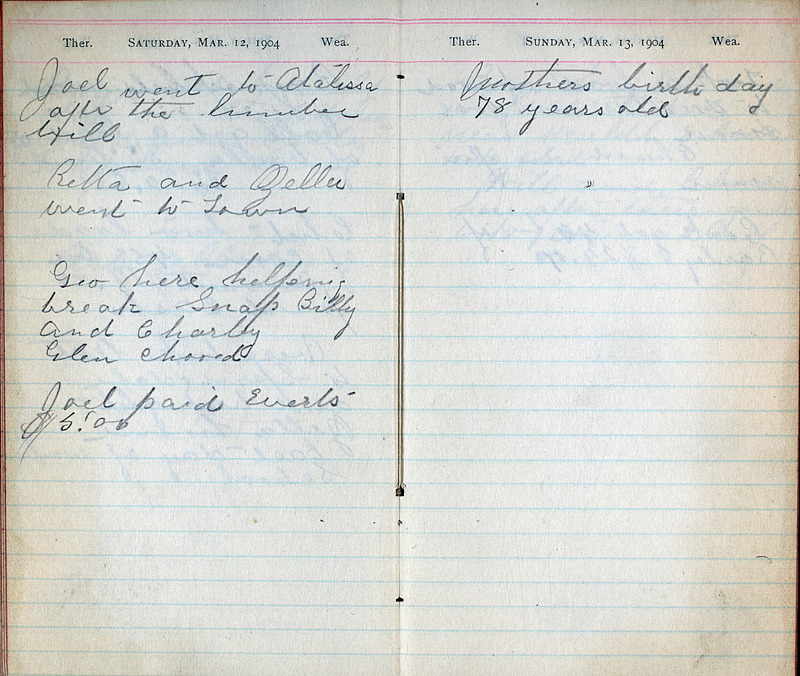 Ther. Saturday, Mar. 12, 1904 Wea.
Joel went to Atalissa
aftr the lumber
Will
Retta and Zella
went to Town
Geo here helping
break Snap Billy
and Charley
Glen chored
Joel paid Everts
$5.00
Ther. Sunday, Mar. 13, 1904 Wea.
Mothers birth day
78 years old